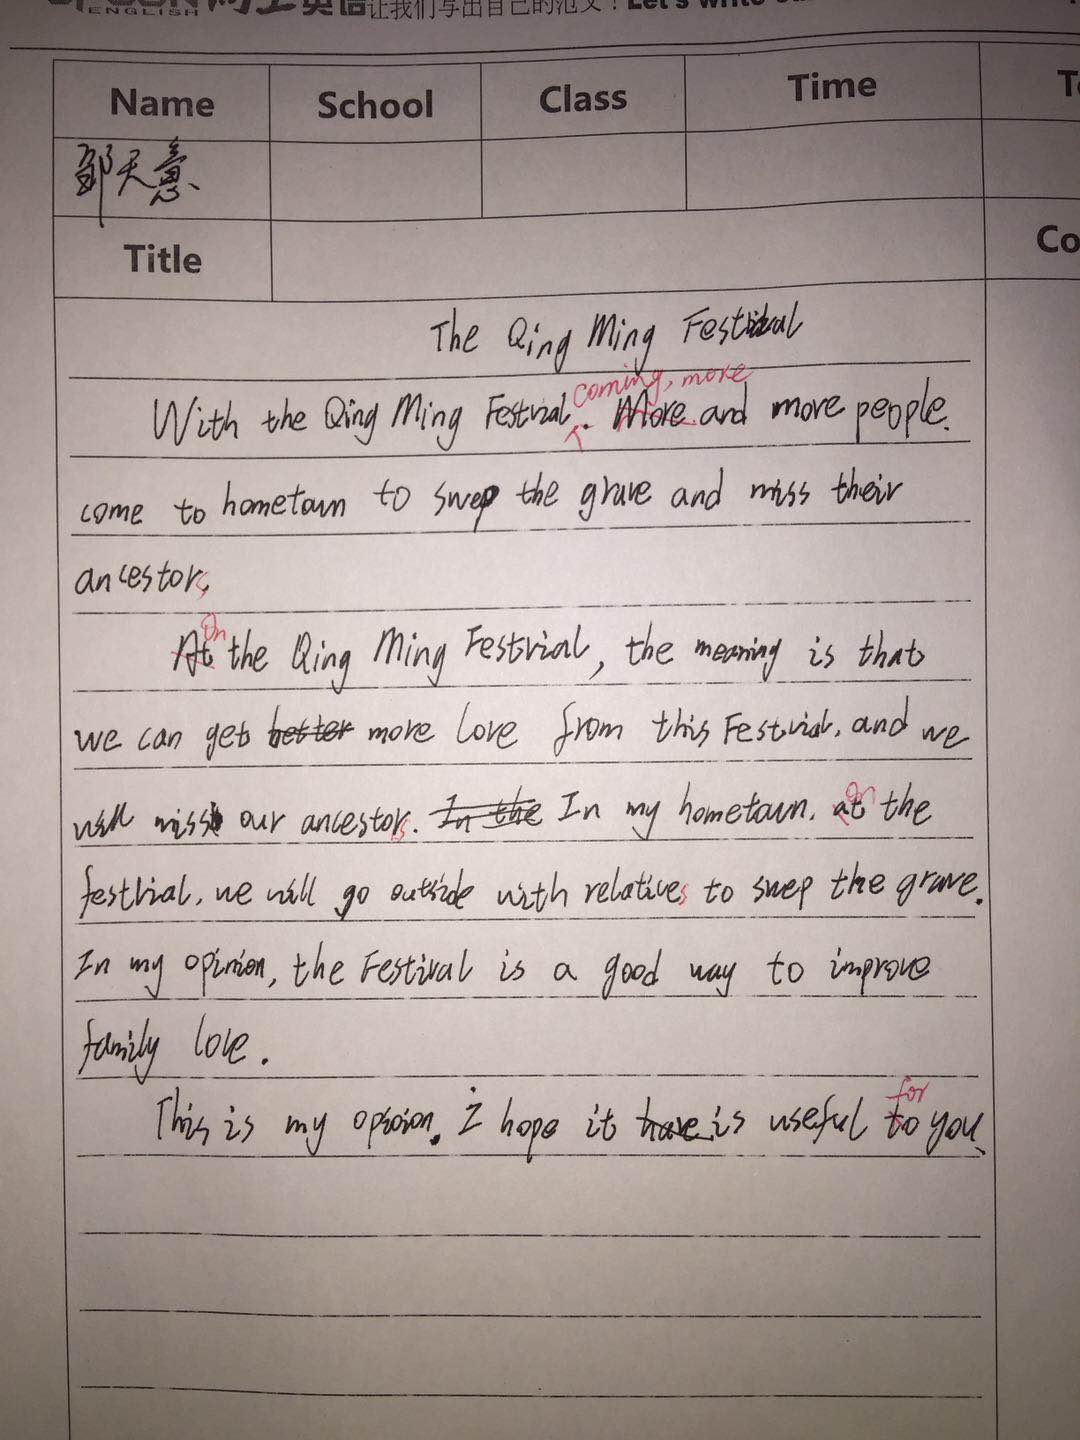 ENGLISH 英语 让我们写出自己的范文！Let's write
Name School Class Time
邹天意
Title Co
The Qing Ming Festival
coming, more
With the Qing Ming Festrial. More and more people.
come to hometown to swep the grave and miss their
ancestors.
On
At the Qing Ming Festrial, the meaning is that
we can get better more love from this Festrial, and we
will miss our ancestors. In the In my hometown, at the
on
festival, we will go outside with relatives to swep the grave.
In my opinion, the Festival is a good way to improve
family love.
for
This is my opinion. I hope it have is useful to you.